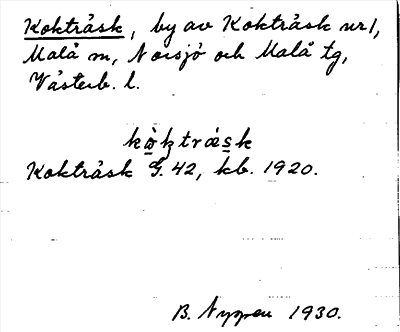 Kokträsk, by av Kokträsk nr 1,
Malå sn, Norsjö och Malå tg,
Västerb. l.
kòkträsk
Kokträsk G. 42, kb. 1920.
B. Nyman 1930.